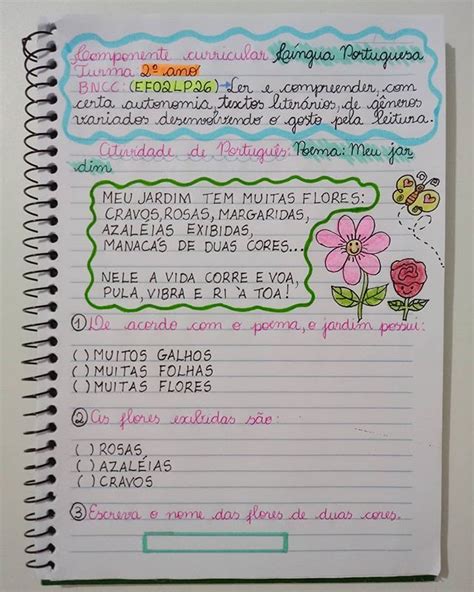 Componente curricular Língua Portuguesa
Turma 2º ano
BNCC: (EF02LP26) Ler e compreender, com
certa autonomia, textos literários, de gêneros
variados desenvolvendo o gosto pela leitura.
Atividade de Português: Poema: Meu jar
dim
MEU JARDIM TEM MUITAS FLORES:
CRAVOS, ROSAS, MARGARIDAS,
AZALEIAS EXIBIDAS,
MANACÁS DE DUAS CORES...
NELE A VIDA CORRE E VOA,
PULA, VIBRA E RI À TOA!
1) De acordo com o poema, o jardim possui:
( ) MUITOS GALHOS
( ) MUITAS FOLHAS
( ) MUITAS FLORES
2) As flores exibidas são:
( ) ROSAS
( ) AZALÉIAS
( ) CRAVOS
3) Escreva o nome das flores de duas cores.